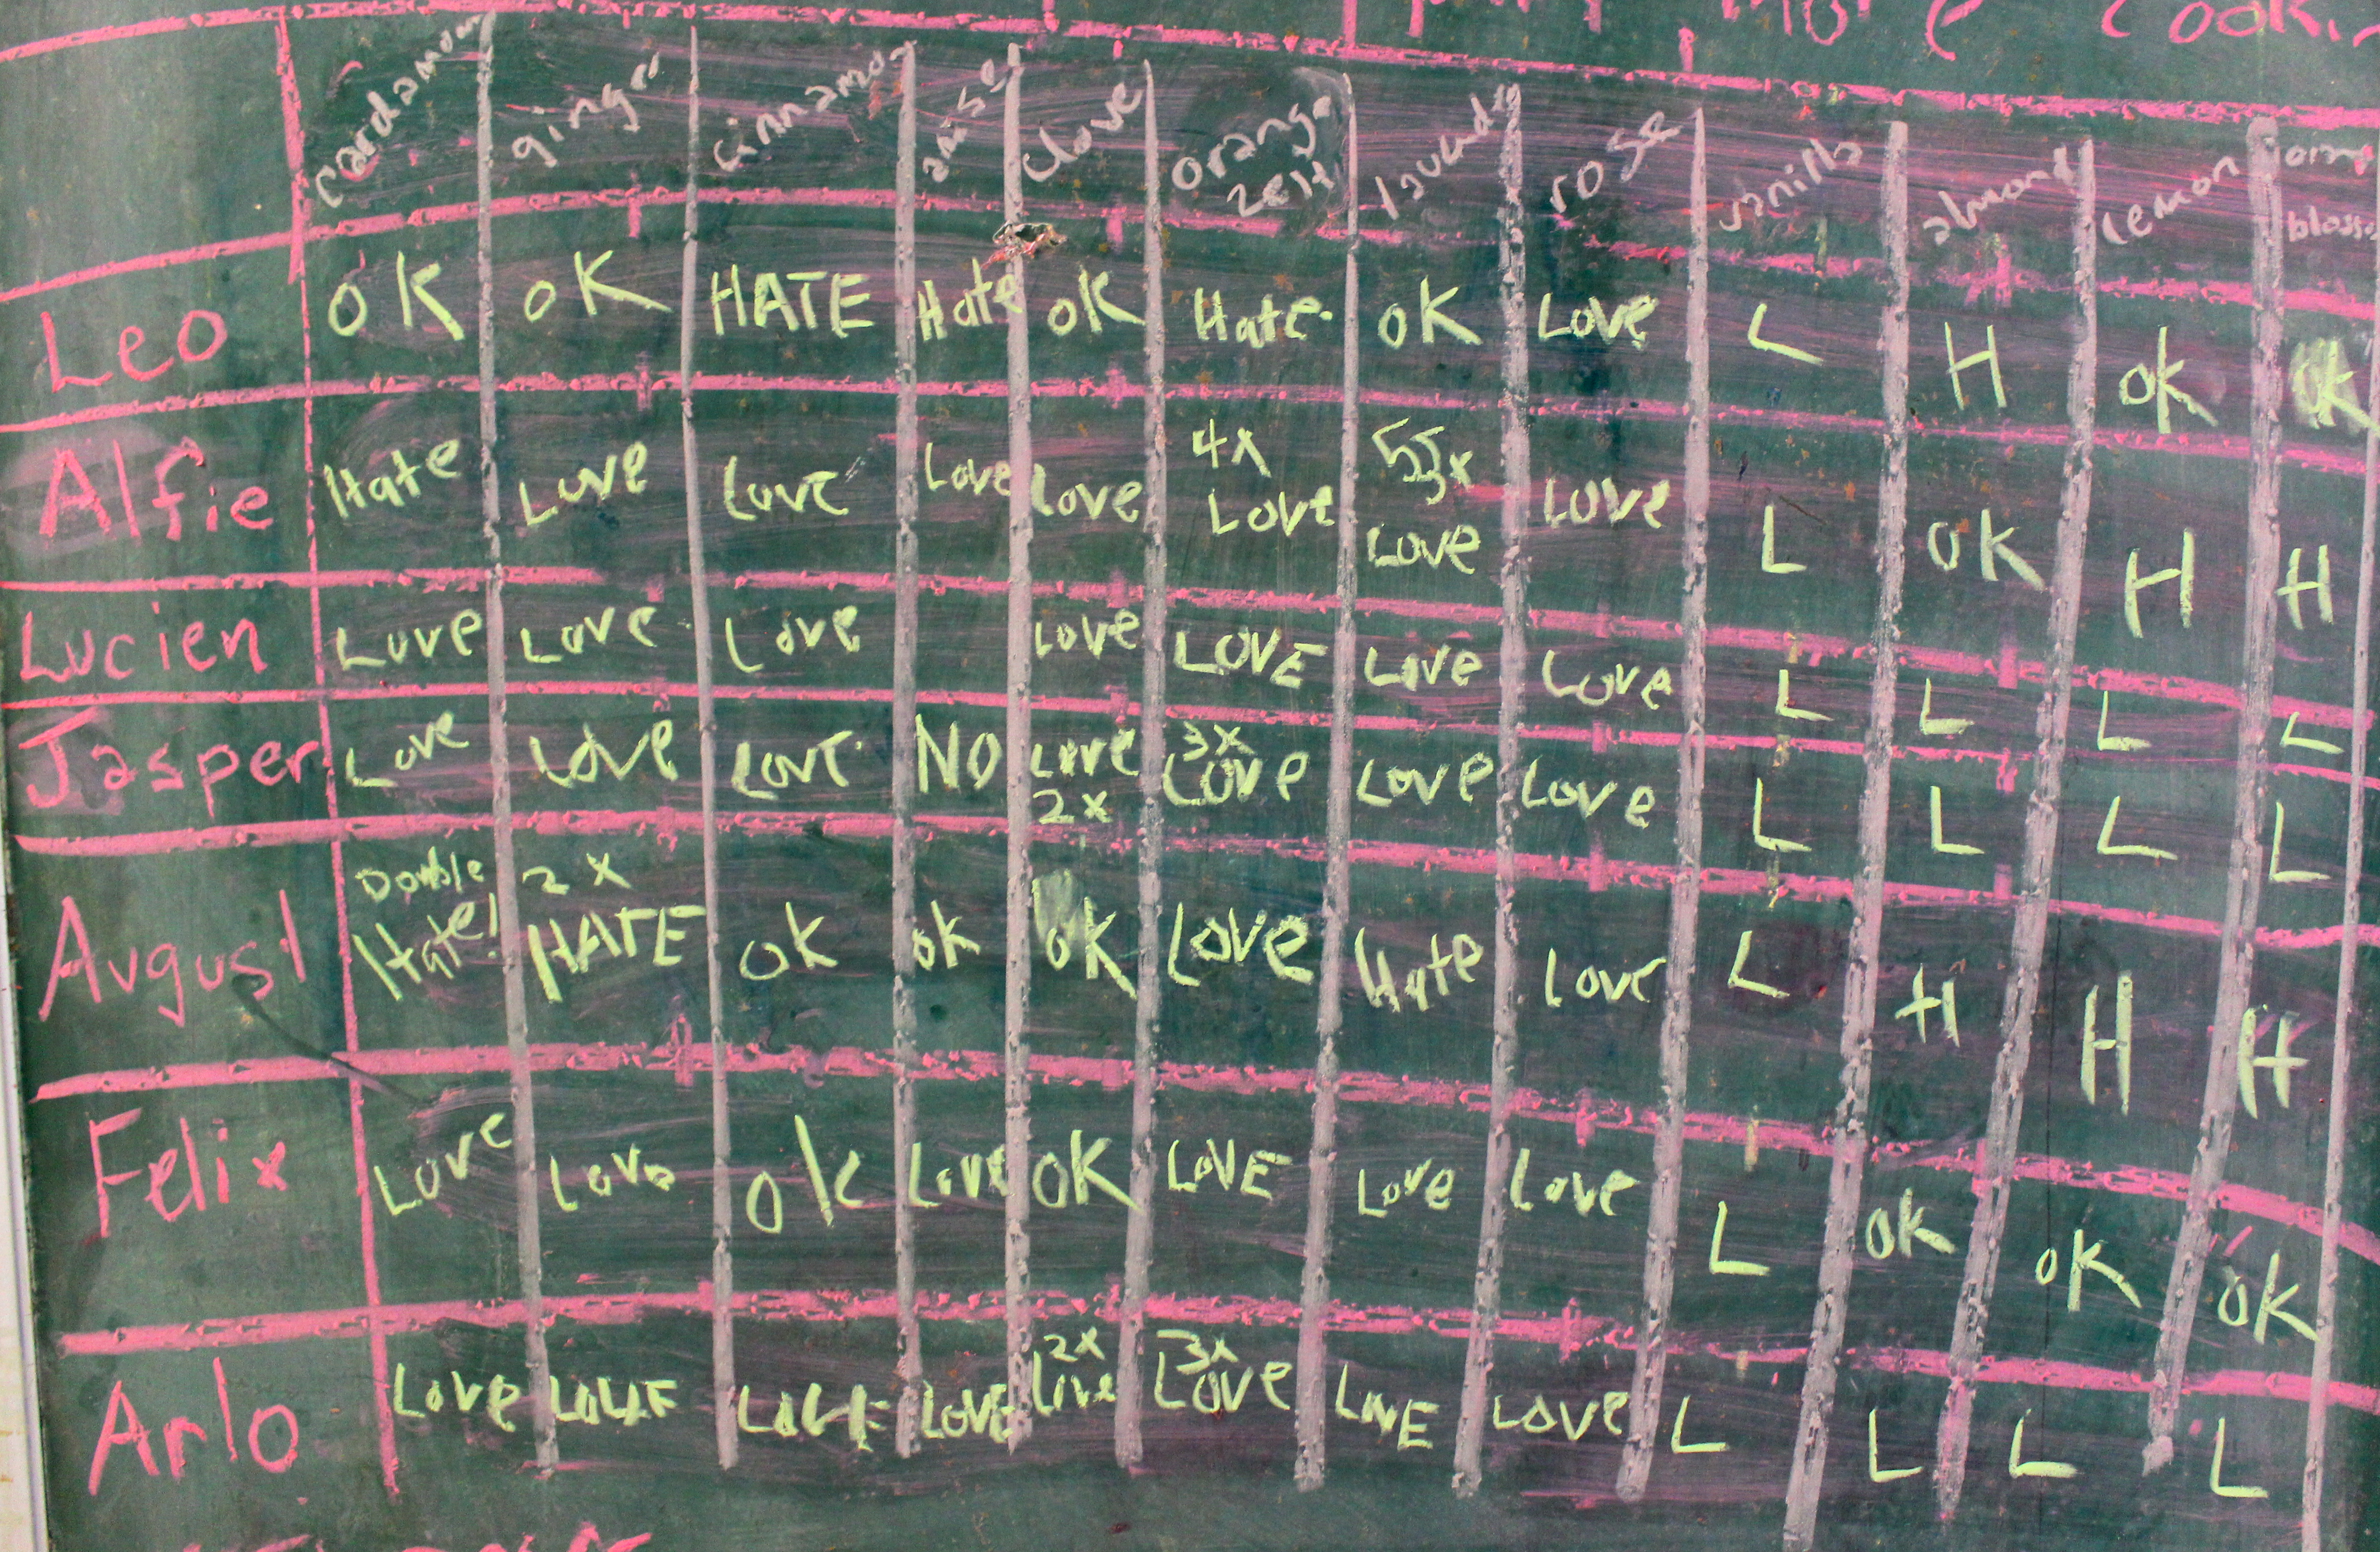 more
cardamom ginger cinnamon anise clove orange zest lavend rose vanilla almond lemon orang blosso
Leo OK OK HATE Hate OK Hate OK Love L H OK OK
Alfie Hate Love Love Love Love 4x Love 55x Love Love L OK H H
Lucien Love Love Love Love LOVE Love Love L L L L
Jasper Love Love Love NO Love 2x 3x Love Love Love L L L L
August Double Hate! 2x HATE OK OK OK Love Hate Love L H H H
Felix Love Love OK Love OK LOVE Love Love L OK OK OK
Arlo Love LOVE LOVE LOVE 2x Love 3x Love LOVE Love L L L L